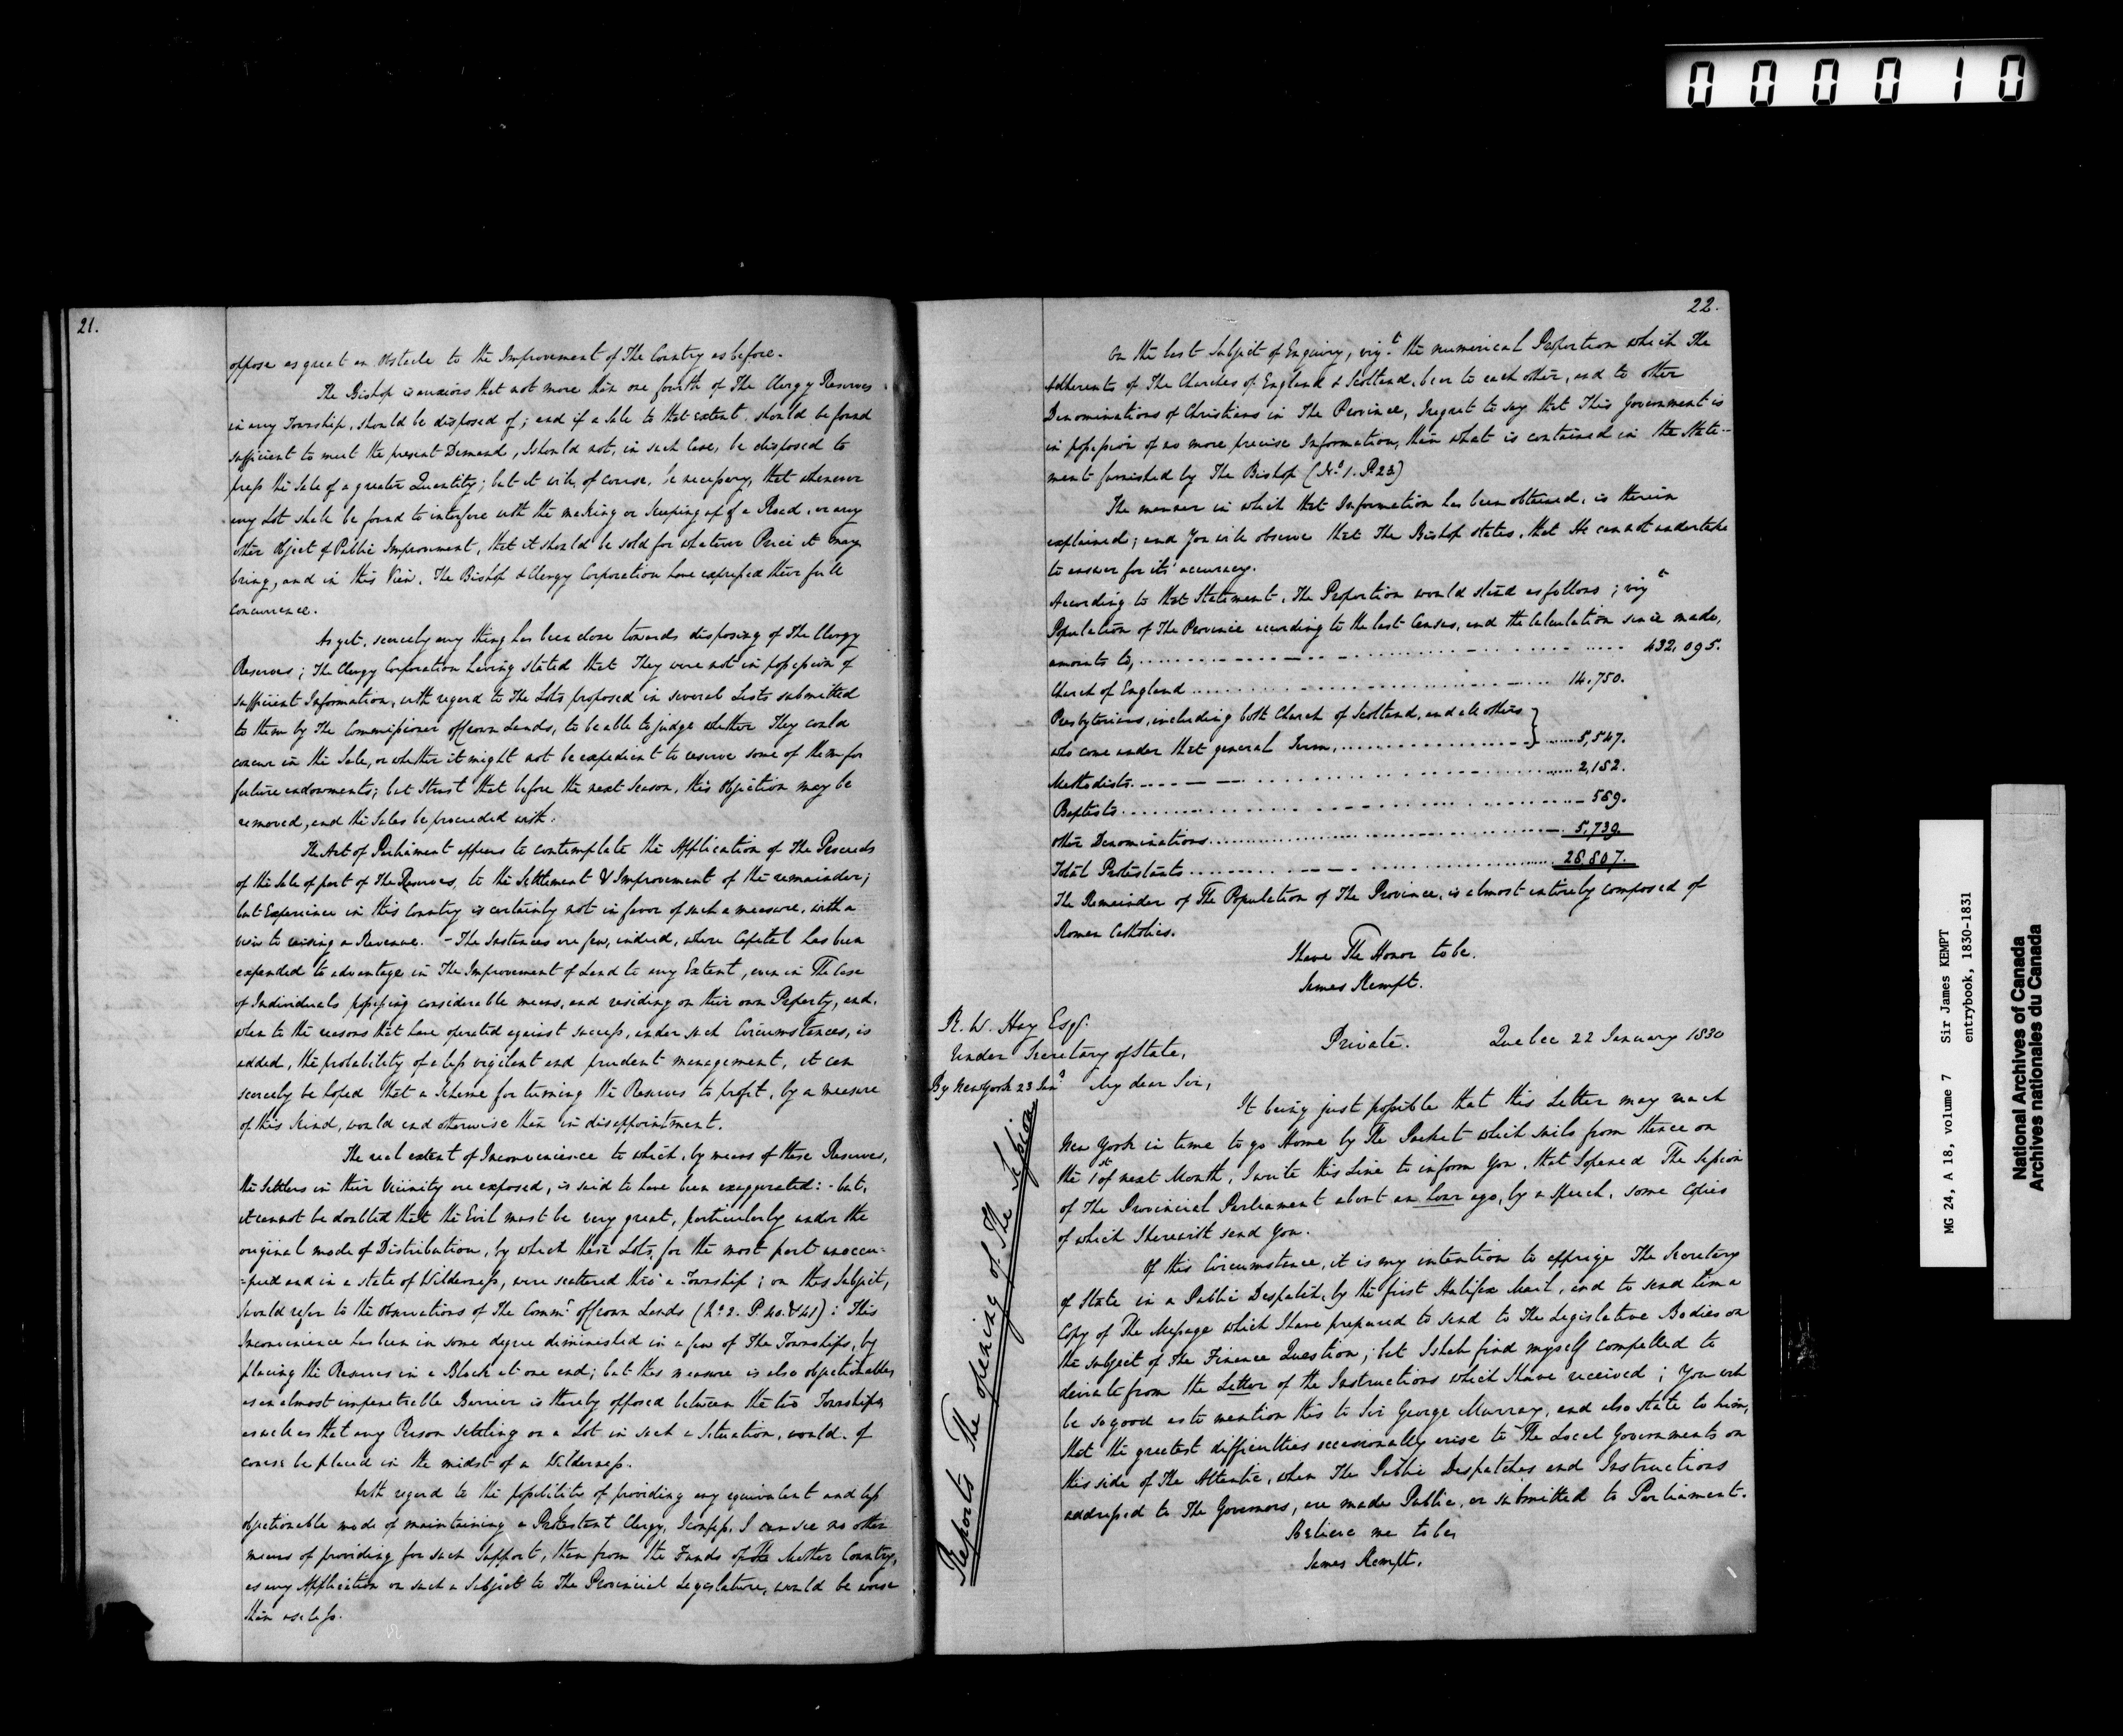 000010
21.
oppose as great an Obstacle to the Improvement of The Country as before.
The Bishop is anxious that not more than one fourth of The Clergy Reserves
in any Township, should be disposed of; and if a Sale to that extent, should be found
sufficient to meet the present Demand, I should not, in such Case, be disposed to
press the Sale of a greater Quantity; but it will, of course, be necessary, that whenever
any Lot shall be found to interfere with the making or keeping up of a Road, or any
other Object of Public Improvement, that it should be sold for whatever Price it may
bring, and in this View, The Bishop & Clergy Corporation have expressed their full
concurrence.
As yet, scarcely any thing has been done towards disposing of The Clergy
Reserves; The Clergy Corporation having stated that They were not in possession of
sufficient Information, with regard to The Lots proposed in several Lists submitted
to them by The Commissioner of Crown Lands, to be able to judge whether They could
concur in the Sale, or whether it might not be expedient to reserve some of them for
future endowments; but I trust that before the next Season, this Objection may be
removed, and the Sales be proceeded with.
The Act of Parliament appears to contemplate the Application of The Proceeds
of the Sale of part of The Reserves, to the Settlement & Improvement of the remainder;
but Experience in this Country is certainly not in favor of such a measure, with a
view to raising a Revenue. - The Instances are few, indeed, where Capital has been
expended to advantage in The Improvement of Land to any Extent, even in The Case
of Individuals possessing considerable means, and residing on their own Property, and,
when to the reasons that have operated against success, under such Circumstances, is
added, the probability of a less vigilant and prudent management, it can
scarcely be hoped that a Scheme for turning the Reserves to profit, by a measure
of this kind, would end otherwise than in disappointment.
The real extent of Inconvenience to which, by means of these Reserves,
the Settlers in their Vicinity are exposed, is said to have been exaggerated: - but,
it cannot be doubted that the Evil must be very great, particularly under the
original mode of Distribution, by which these Lots, for the most part unoccu=
=pied and in a state of Wilderness, were scattered thro' a Township; on this Subject,
I would refer to the Observations of The Commr of Crown Lands (No 2. P. 40. & 41): This
Inconvenience has been in some degree diminished in a few of The Townships, by
placing the Reserves in a Block at one end; but this measure is also objectionable,
as an almost impenetrable Barrier is thereby opposed between the two Townships,
as well as that any Person settling on a Lot in such a Situation, would, of
course be placed in the midst of a Wilderness.
With regard to the possibility of providing any equivalent and less
objectionable mode of maintaining a Protestant Clergy, I confess, I can see no other
means of providing for such Support, than from the Funds of the Mother Country,
as any Application on such a Subject to The Provincial Legislature, would be worse
than useless.
22.
On the last Subject of Enquiry, vizt. the numerical Proportion which The
Adherents of The Churches of England & Scotland, bear to each other, and to other
Denominations of Christians in The Province, I regret to say that This Government is
in possession of no more precise Information, than what is contained in the State--
ment furnished by The Bishop (No 1. P. 23)
The manner in which that Information has been obtained, is therein
explained; and You will observe that The Bishop states, that He cannot undertake
to answer for its' accuracy.
According to that Statement, The Proportion would stand as follows; vizt
Population of The Province according to the last Census, and the Calculation since made,
amounts to, 432,095.
Church of England 14,750.
Presbyterians, including both Church of Scotland, and all others
who come under that general Term, 5,547.
Methodists 2,182.
Baptists 589.
Other Denominations 5,739.
Total Protestants 28,807.
The Remainder of The Population of The Province, is almost entirely composed of
Roman Catholics.
I have The Honor to be,
James Kempt.
R. W. Hay Esqr.
Under Secretary of State,
By New York 23 Jany
Private. Quebec 22 January 1830
My dear Sir,
Reports The opening of The Session
It being just possible that this Letter may reach
New York in time to go Home by The Packet which sails from thence on
the 1st of next Month, I write this Line to inform You, that I opened The Session
of The Provincial Parliament about an hour ago, by a Speech, some Copies
of which I herewith send You.
Of this Circumstance, it is my intention to apprize The Secretary
of State in a Public Despatch, by the first Halifax Mail, and to send him a
Copy of The Message which I have prepared to send to The Legislative Bodies on
the subject of the Finance Question; but I shall find myself compelled to
deviate from the Letter of the Instructions which I have received; You will
be so good as to mention this to Sir George Murray, and also state to him,
that the greatest difficulties occasionally arise to The Local Governments on
this side of The Atlantic, when The Public Despatches and Instructions
addressed to The Governors, are made Public, or submitted to Parliament.
Believe me to be,
James Kempt.
MG 24, A 18, volume 7 Sir James KEMPT
entrybook, 1830-1831
National Archives of Canada
Archives nationales du Canada